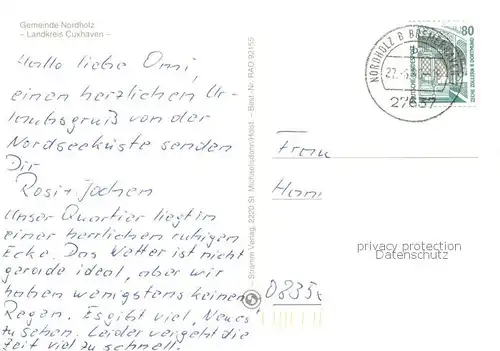 Gemeinde Nordholz
– Landkreis Cuxhaven –
Hallo liebe Omi,
einen herzlichen Ur-
laubsgruß von der
Nordseeküste senden
Dir
Rosi + Jochen
Unser Quartier liegt in
einer herrlichen ruhigen
Ecke. Das Wetter ist nicht
gerade ideal, aber wir
haben wenigstens keinen
Regen. Es gibt viel „Neues“
zu sehen. Leider vergeht die
Zeit viel zu schnell.
Stramm Verlag, 2320 St. Michaelisdonn/Holst. – Best.-Nr. RAD 92155
NORDHOLZ B BREMERHAVEN
27637
80
DEUTSCHE BUNDESPOST
ZECHE ZOLLERN II DORTMUND
Frau
Hann
privacy protection
Datenschutz
0835